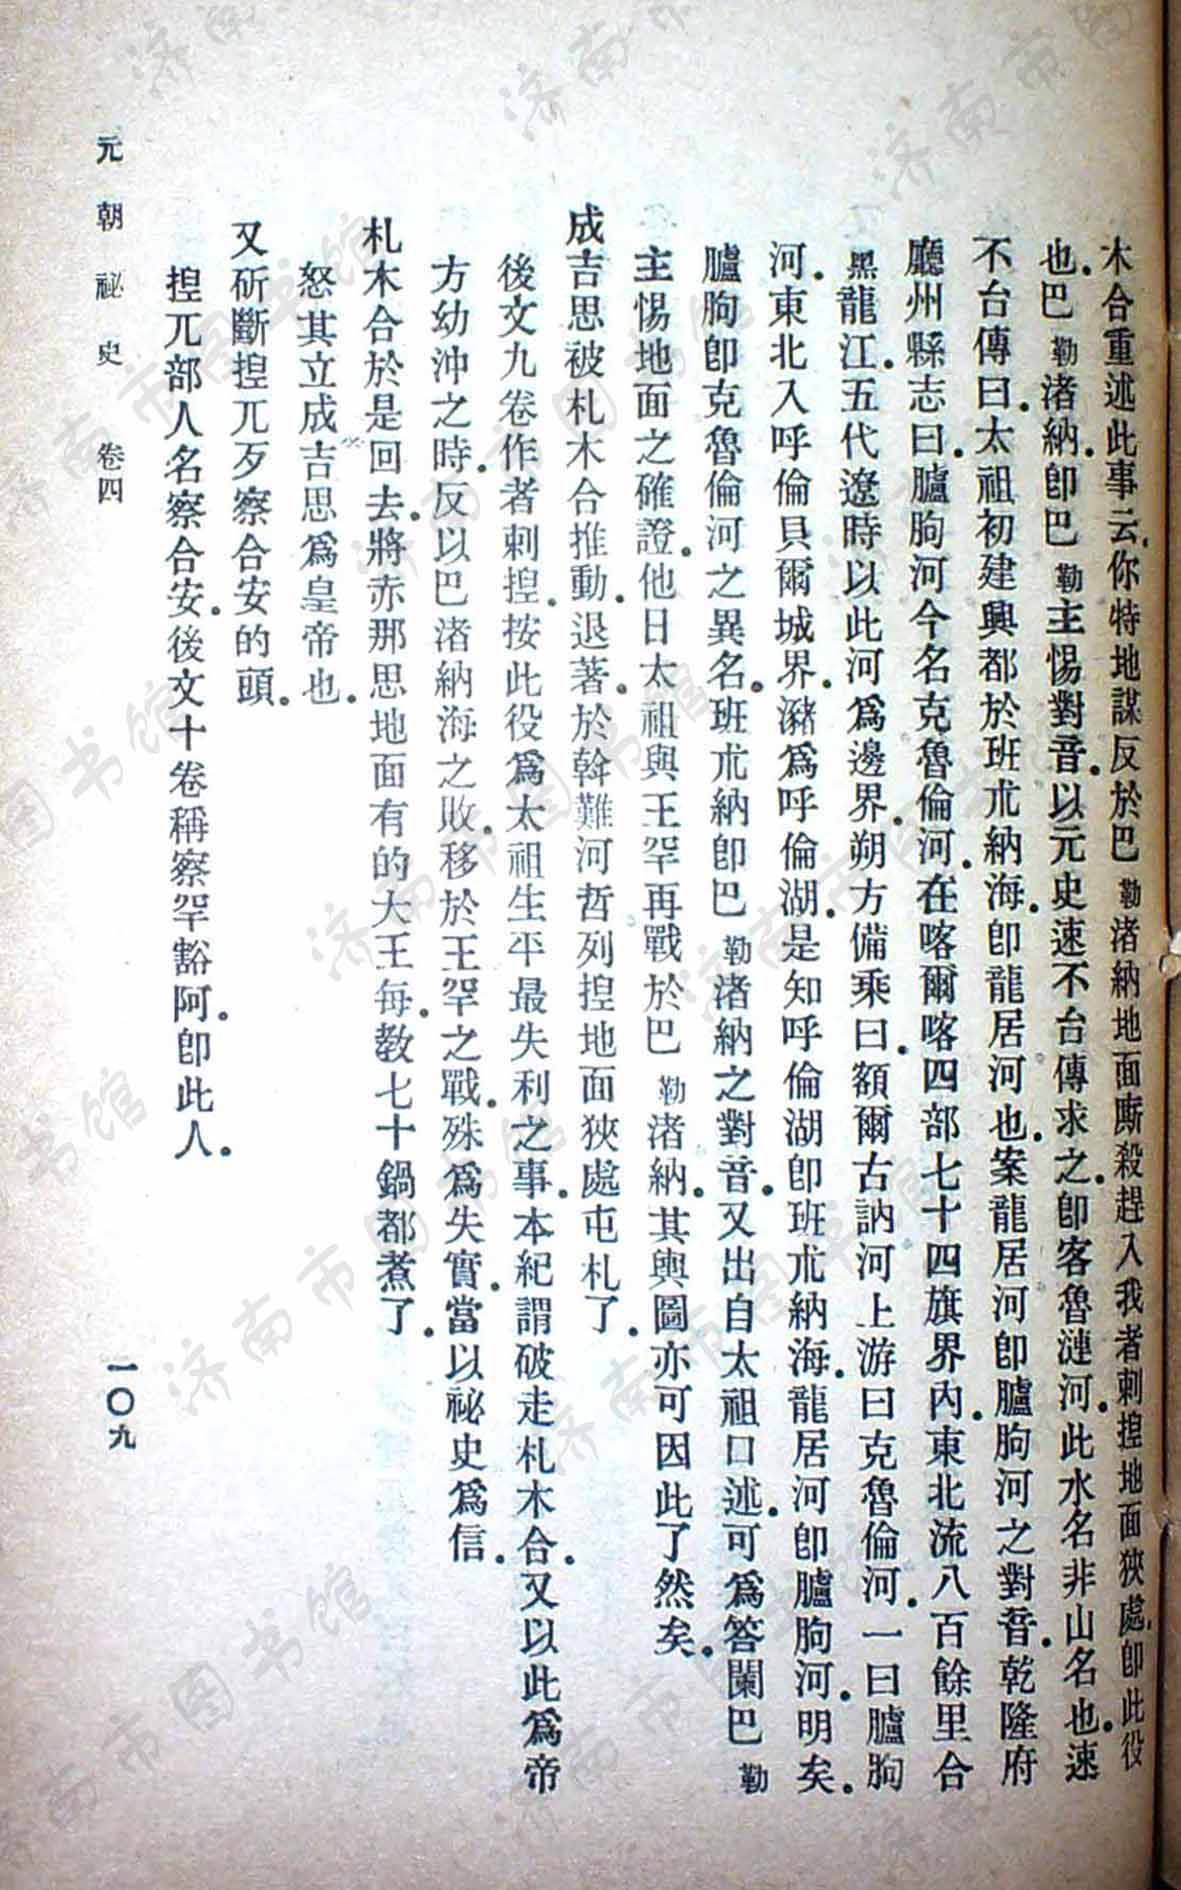 木合重述此事云你特地謀反於巴勒渚納地面廝殺趕入我者剌揑地面狹處卽此役
也巴勒渚納卽巴勒主惕對音以元史速不台傳求之卽客魯漣河此水名非山名也速
不台傳曰太祖初建興都於班朮納海卽龍居河也案龍居河卽臚朐河之對音乾隆府
廳州縣志曰臚朐河今名克魯倫河在喀爾喀四部七十四旗界內東北流八百餘里合
黑龍江五代遼時以此河爲邊界朔方備乘曰額爾古訥河上游曰克魯倫河一曰臚朐
河東北入呼倫貝爾城界瀦爲呼倫湖是知呼倫湖卽班朮納海龍居河卽臚朐河明矣
臚朐卽克魯倫河之異名班朮納卽巴勒渚納之對音又出自太祖口述可爲答闌巴勒
主惕地面之確證他日太祖與王罕再戰於巴勒渚納其輿圖亦可因此了然矣
成吉思被札木合推動退著於斡難河哲列揑地面狹處屯札了
後文九卷作者剌揑按此役爲太祖生平最失利之事本紀謂破走札木合又以此爲帝
方幼沖之時反以巴渚納海之敗移於王罕之戰殊爲失實當以祕史爲信
札木合於是回去將赤那思地面有的大王每教七十鍋都煮了
怒其立成吉思爲皇帝也
又斫斷揑兀歹察合安的頭
揑兀部人名察合安後文十卷稱察罕豁阿卽此人
元朝祕史 卷四 一〇九